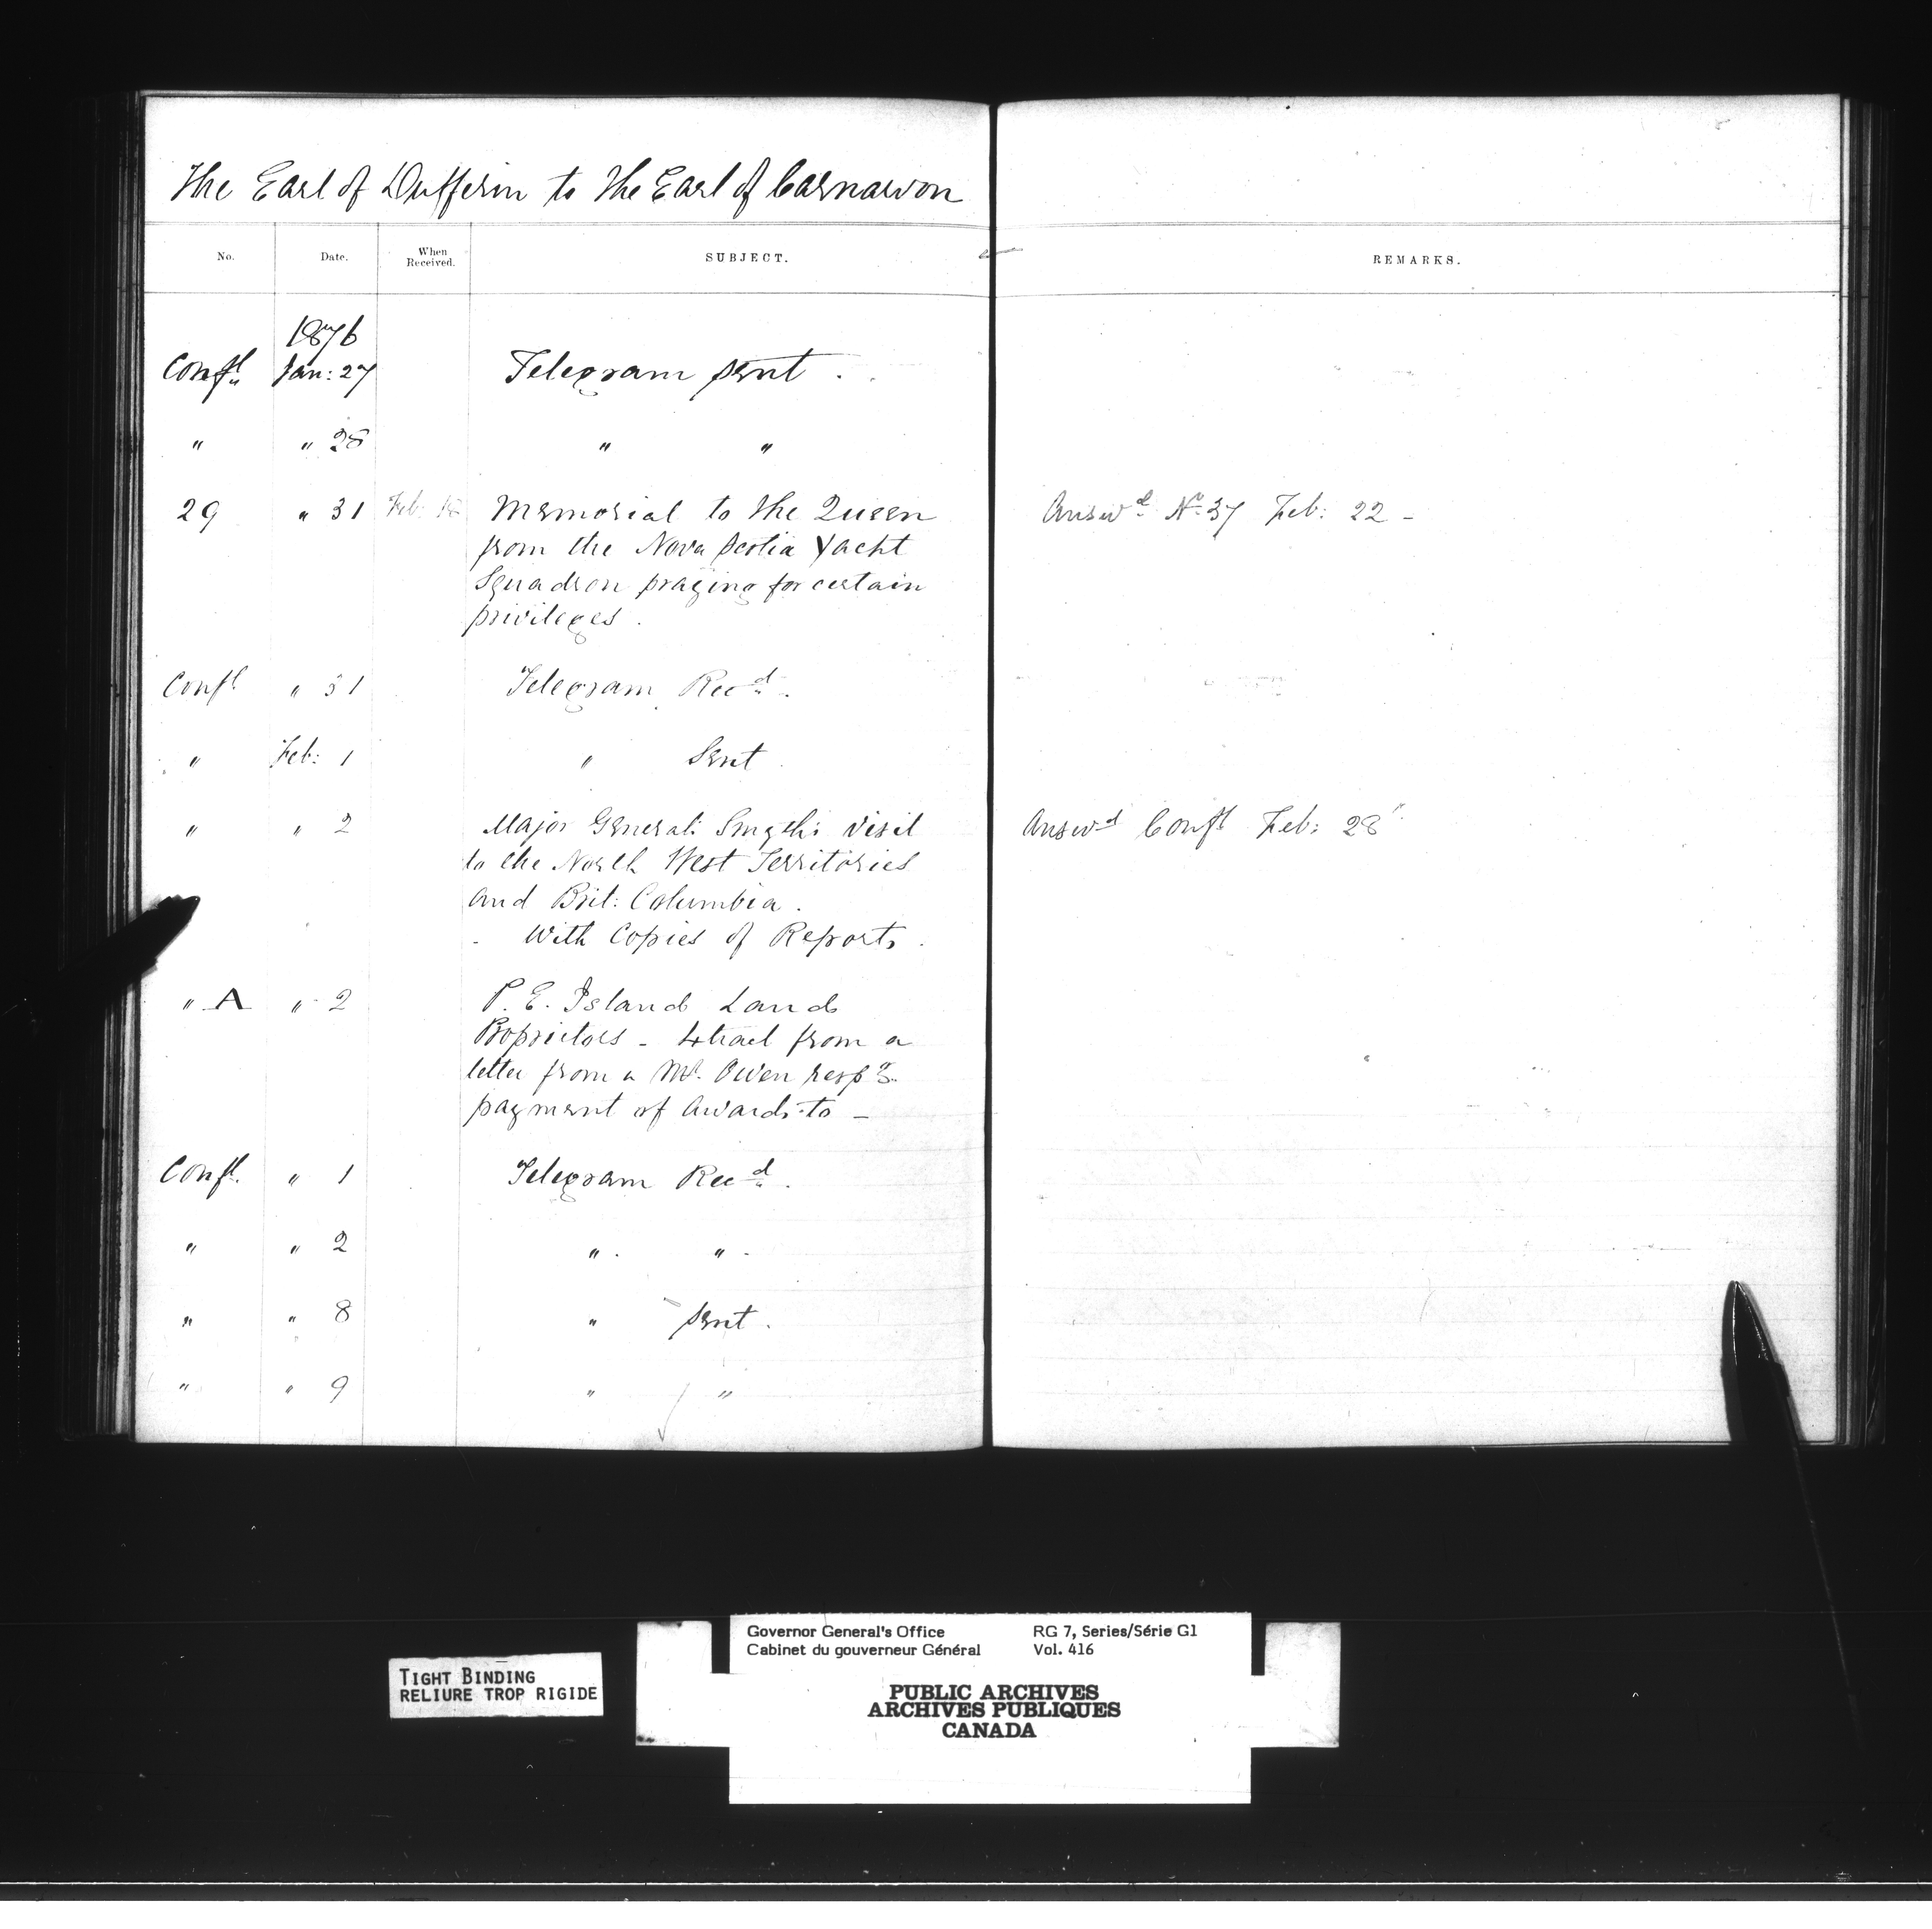 The Earl of Dufferin to the Earl of Carnarvon
No. Date. When Received. SUBJECT. REMARKS.
1876
Confl Jan: 27 Telegram sent .
" " 28 " "
29 " 31 Feb: 18 Memorial to the Queen Answd No 37 Feb: 22 -
from the Nova Scotia Yacht
Squadron praying for certain
privileges .
Confl " 31 Telegram Recd .
" Feb: 1 " Sent .
" " 2 Major General Smyth's visit Answd Confl Feb: 28
to the North West Territories
and Brit: Columbia .
- With Copies of Reports .
" A " 2 P. E. Island Land
Proprietors - Xtract from a
letter from a Mr. Owen respg
payment of Awards to -
Confl " 1 Telegram Recd .
" " 2 " . " .
" " 8 " sent .
" " 9 " "
Governor General's Office RG 7, Series/Série G1
Cabinet du gouverneur Général Vol. 416
TIGHT BINDING
RELIURE TROP RIGIDE
PUBLIC ARCHIVES
ARCHIVES PUBLIQUES
CANADA